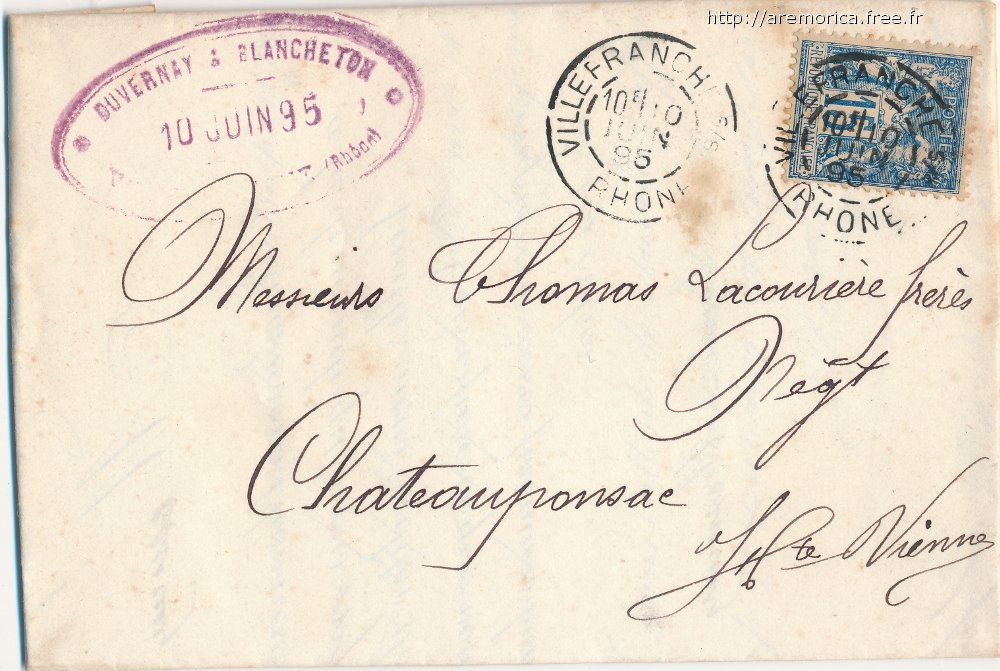 http://aremorica.free.fr
DUVERNAY & BLANCHETON
10 JUIN 95
(Rhône)
VILLEFRANCHE S/S
10E 10
JUIN
95
RHONE
15
VILLEFRANCHE S/S
10E 10
JUIN
95
RHONE
Messieurs Thomas Lacourière frères
Négt
Chateauponsac
Hte Vienne